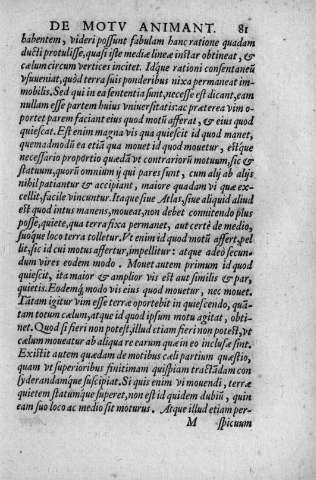 DE MOTV ANIMANT. 81
habentem, videri possunt fabulam hanc ratione quadam
ducti protulisse, quasi iste mediæ lineæ instar obtineat, &
cælum circum vertices incitet. Idq́ue rationi consentaneũ
vsuueniat, quòd terra suis ponderibus nixa permaneat im-
mobilis. Sed qui in ea sententia sunt, necesse est dicant, eam
nullam esse partem huius vniuersitatis: ac præterea vim o-
portet parem faciant eius quod motũ afferat, & eius quod
quiescat. Est enim magna vis qua quiescit id quod manet,
quemadmodũ ea etiã qua mouet id quod mouetur, estq́ue
necessario proportio quædã vt contrariorũ motuum, sic &
statuum, quorũ omnium ij qui pares sunt, cum alij ab alijs
nihil patiantur & accipiant, maiore quadam vi quæ ex-
cellit, facile vincuntur. Itaque siue Atlas, siue aliquid aliud
est quod intus manens, moueat, non debet connitendo plus
posse, quiete, qua terra fixa permanet, aut certè de medio,
suoque loco terra tolletur. Vt enim id quod motũ affert, pel
lit, sic id cui motus affertur, impellitur: atque adeo secun-
dum vires eodem modo. Mouet autem primum id quod
quiescit, ita maior & amplior vis est aut similis & par,
quietis. Eodemq́ modo vis eius quod mouetur, nec mouet.
Tãtam igitur vim esse terræ oportebit in quiescendo, quã-
tam totum cælum, atque id quod ipsum motu agitat, obti-
net. Quod si fieri non potest, illud etiam fieri non potest, vt
cælum moueatur ab aliqua re earum quæ in eo inclusæ sint.
Existit autem quædam de motibus cæli partium quæstio,
quam vt superioribus finitimam quispiam tractãdam con
syderandamq́ue suscipiat. Si quis enim vi mouendi, terræ
quietem statumque superet, non est id quidem dubiũ, quin
eam suo loco ac medio sit moturus. Atque illud etiam per-
M spicuum